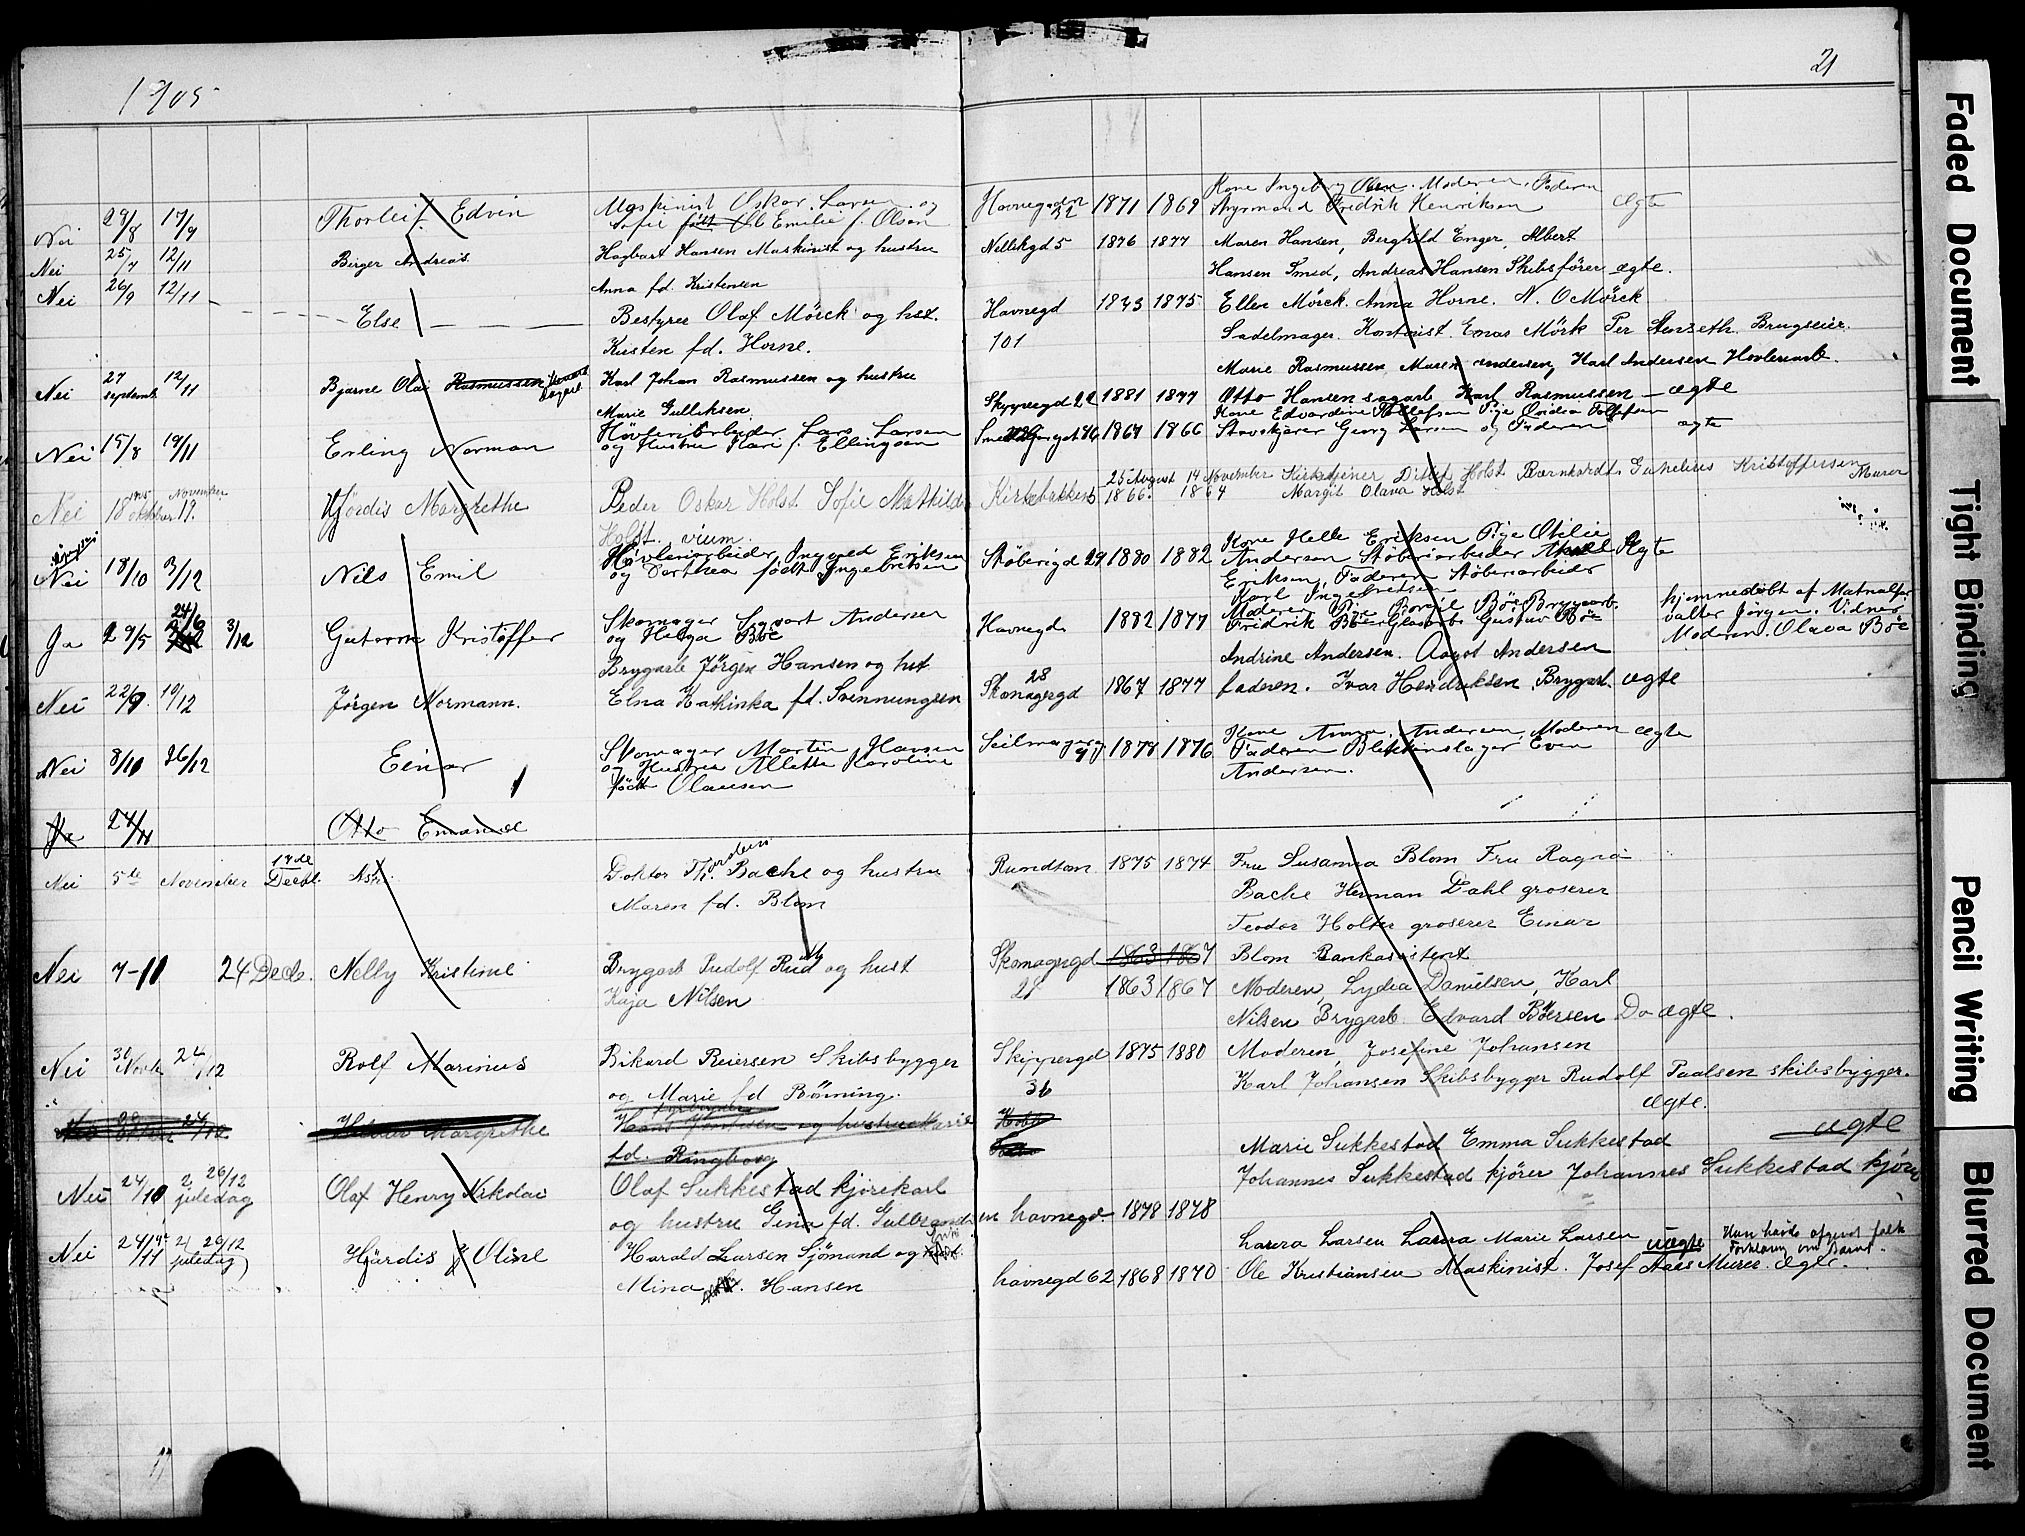 1905
21
Nei 29/8 17/9 Thorleif Edvin Maskinist Oskar Larsen og Havnegaden 32 1871 1869 Kone Ingeborg Olsen. Moderen, Faderen
Sofie født Emilie f. Olsen Styrmand Fredrik Henriksen Ægte
Nei 25/7 12/11 Birger Andreas Hagbart Hansen Maskinist og hustru Nellikgd 5 1876 1877 Maren Hansen, Berghild Enger, Albert
Anna fd. Kristensen Hansen Smed, Andreas Hansen Skibsfører ægte.
Nei 26/9 12/11 Else Bestyrer Olaf Mörck og hst. Havnegd 101 1873 1875 Ellen Mörck. Anna Horne. N. O Mörck
Kirsten fd. Horne. Sadelmager. Kontorist. Enas Mörk Per Stenseth. Brugseier.
Nei 27 septemb 12/11 Bjarne Olai Rasmussen Karl Johan Rasmussen og hustru Skippergd 22 1881 1877 Marie Rasmussen, Maren Andersen, Karl Andersen Hövleriarb.
Marie Gulliksen Otto Hansen sagarb Karl Rasmussen — ægte
Nei 15/8 19/11 Erling Norman Hövleriarbeider Lars Larsen 1864 1866 Kone Edvardine Tollefsen Pige Ovidia Tollefsen
og Hustru Kari f. Ellingsen Stavskjærer Georg Larsen og Faderen ægte
Nei 18 oktober November 19. Hjördis Margrethe Peder Oskar Holst. Sofie Mathilde Kirkebakken 5 25 August 1866. 14 November 1864 Kirketjener Ditlef Holst Bernhardt Gunelius Kristoffersen Murer
Holst. vium. Margit Olava Holst
Nei 18/10 3/12 Nils Emil Hövleriarbeider Ingvald Eriksen Støberigd 29 1880 1882 Kone Helle Eriksen Pige Otilie
og Dorthea født Ingebretsen Andersen Støberiarbeider Ægte
Eriksen, Faderen Støberiarbeider
Karl Ingebretsen
Ja 29/5 24/6 3/12 Gutorm Kristoffer Skomager Sigvart Andersen Havnegd 1882 1877 Moderen Pige Borgil Böe Brygarb.
og Helga Böe Fridrik Böe Glasarb. Gustav Böe
hjemmedøbt af Matrialforvalter Jørgen. Vidner Moderen. Olava Böe
Nei 22/9 10/12 Jörgen Normann. Brygarb Jörgen Hansen og hst Skomagergd 28 1867 1877 Andrine Andersen. Aagot Andersen
Elna Kathinka fd. Svennungsen faderen. Ivar Hendriksen, Brygarb. ægte
Nei 8/10 26/12 Einar Skomager Martin Hansen 1877 1876 Kone Anna Andersen, Moderen ægte
og Hustru Allette Karoline Faderen Blikkenslager Even
født Olausen Andersen.
Ja 24/11 Otto Emanuel
Nei 5te November 17de Decbr. Doktor Th. Bache og hustru Rundtom 1875 1874 Fru Susanna Blom Fru Ragna
Maren fd. Blom Bache Herman Dahl groserer
Teodor Holter groserer Einar
Blom Bankassistent
Nei 7-11 24 Decb. Nelly Kristine Brygarb Rudolf Rud og hust Skomagergd 28 1863 1867
Kaja Nilsen 1863 1867 Moderen, Lydia Danielsen, Karl
Nilsen Brygarb Edvard Börsen Do ægte.
Nei 30 Novb 24/12 Rolf Marinus Rikard Reiersen Skibsbygger Skippergd 36 1875 1880 Moderen, Josefine Johansen
og Marie fd Bönning. Karl Johansen Skibsbygger Rudolf Paalsen skibsbygger.
ægte.
Margrethe og hustru Marie
fd. Ringborg
ægte
Nei 24/10 2 26/12 juledag Olaf Henry Nikolai Olaf Sukkestad kjörekarl Marie Sukkestad Emma Sukkestad
og hustru Gina fd. Gulbrandsen havnegd. 1878 1878 Johannes Sukkestad kjörer Johannes Sukkestad kjörer
Nei 24/11 2 26/12 juledag Hjördis Oline Harald Larsen Sjömand og Laura Larsen Laura Marie Larsen uægte
Mina Hansen havnegd 62 1868 1870 Ole Kristiansen Maskinist. Josef Aas Murer ægte.
Faded Document
Tight Binding
Pencil Writing
Blurred Document